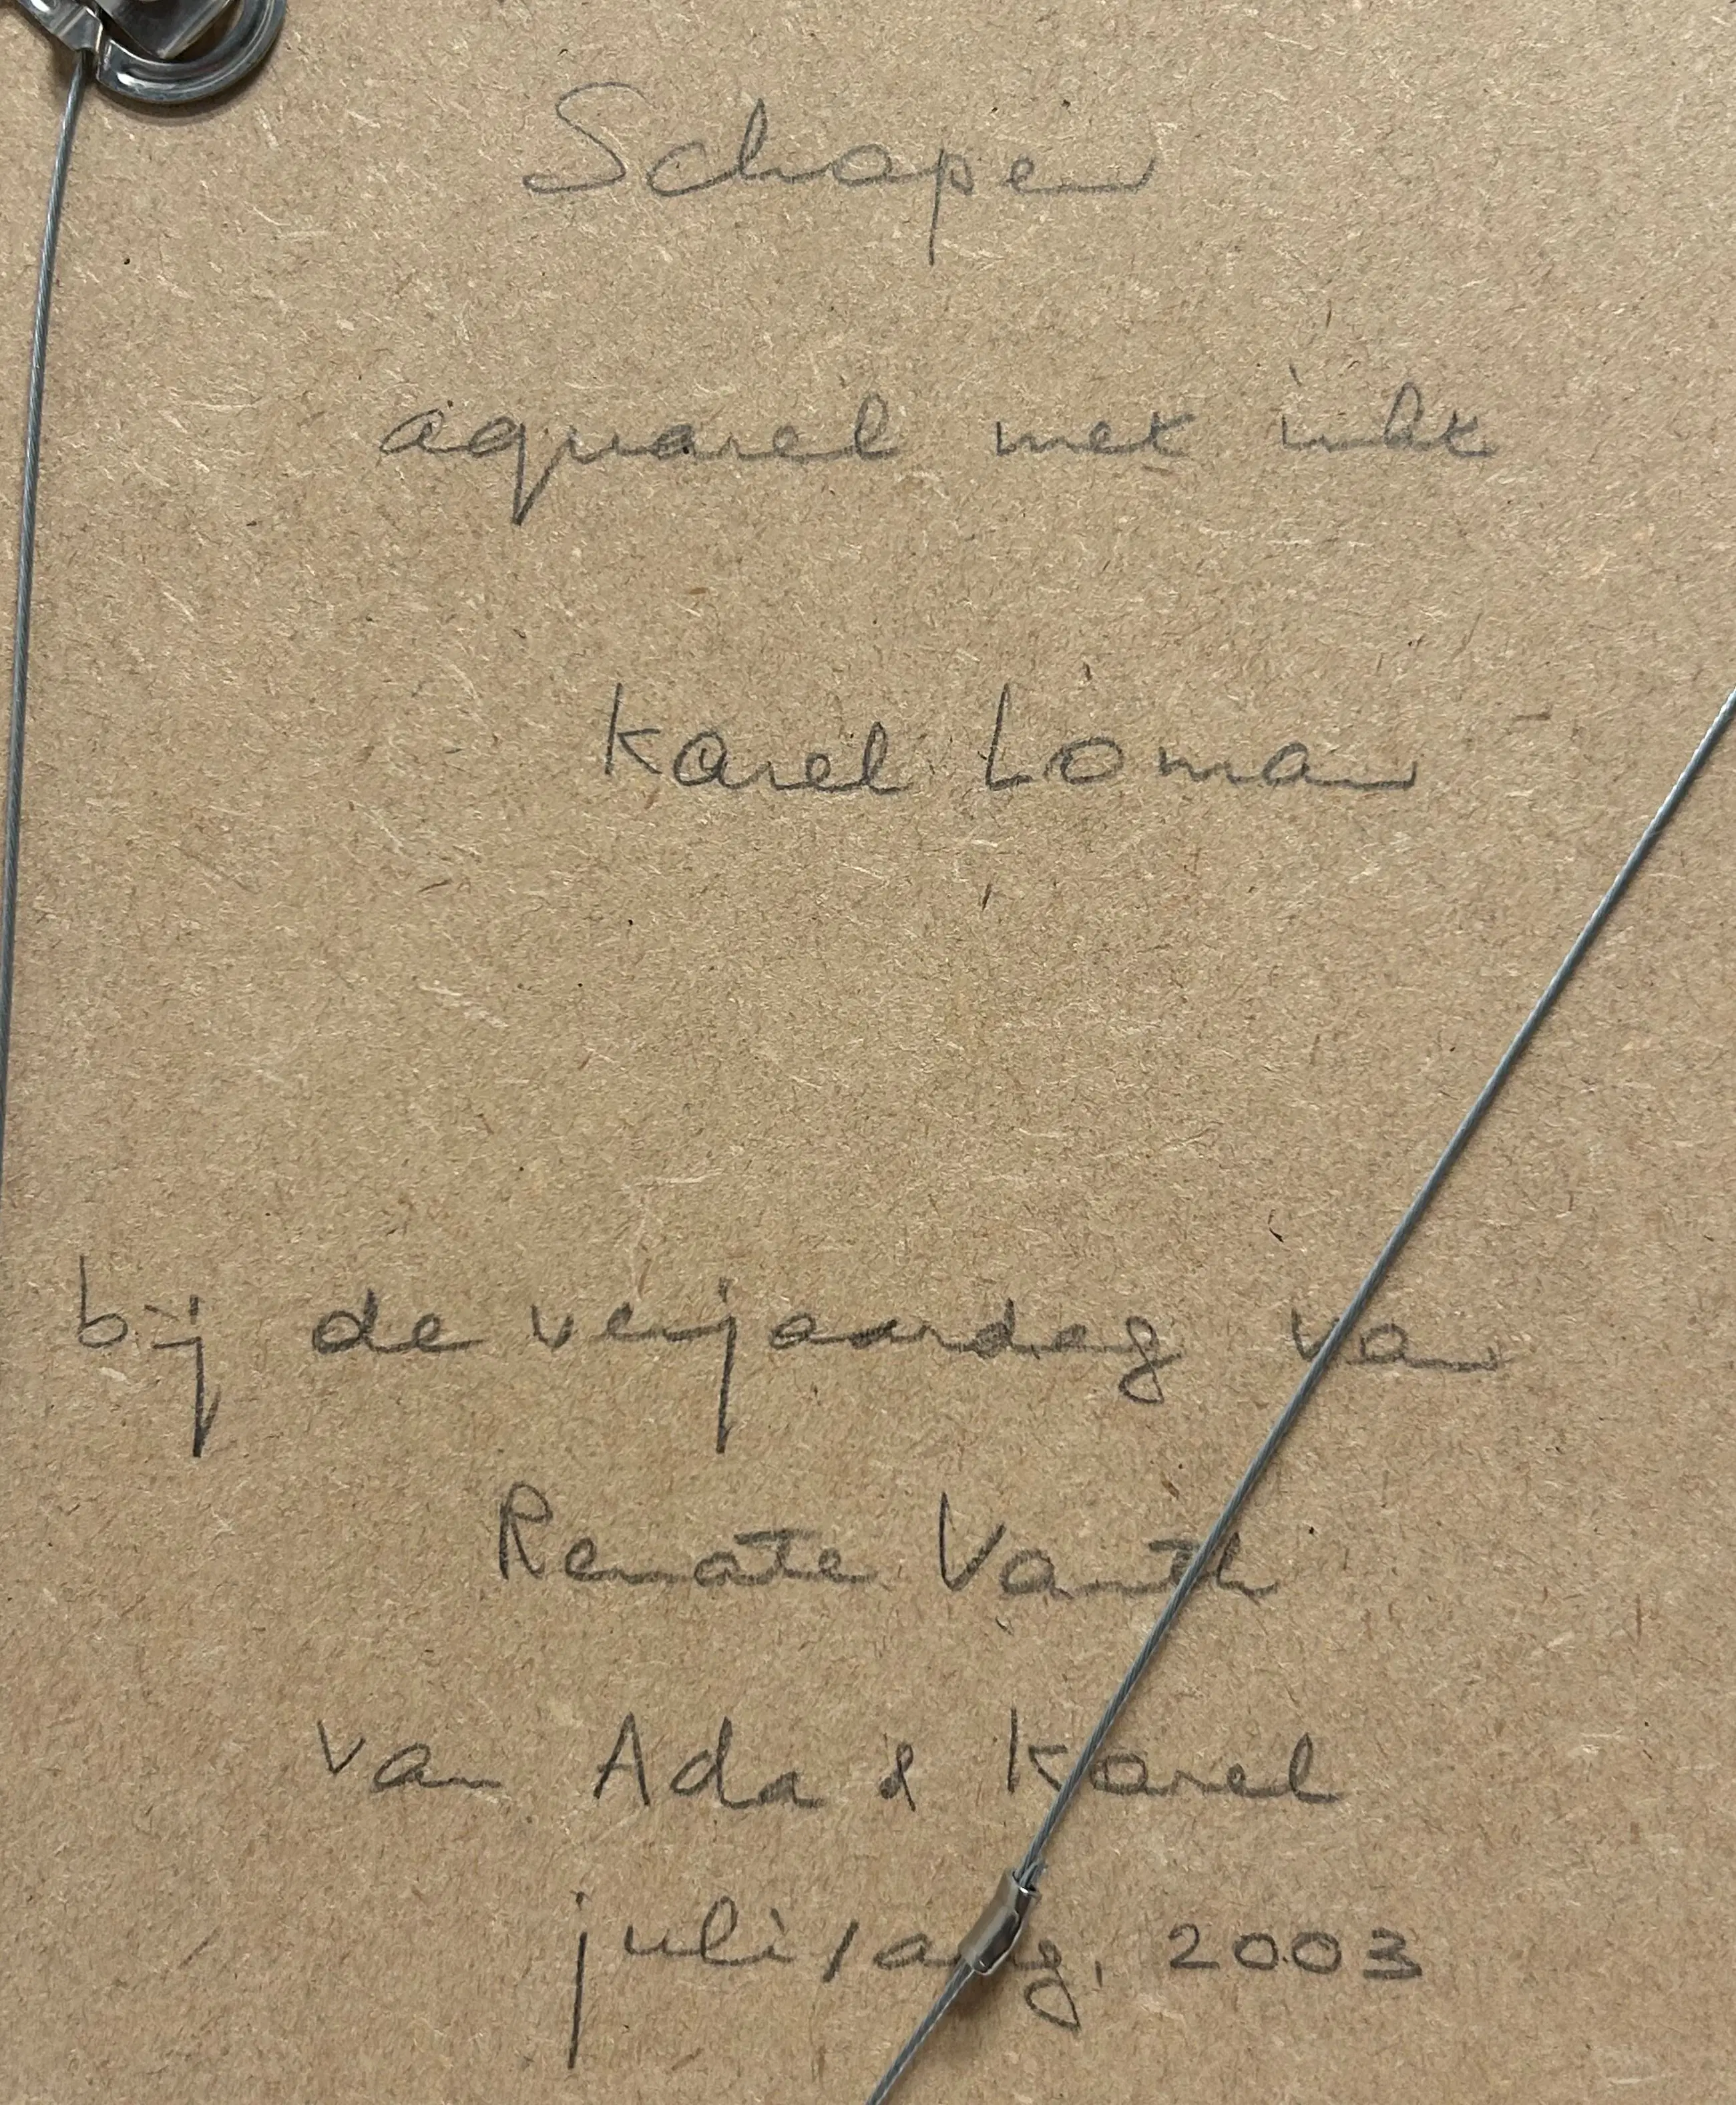 Schapen
aquarel met inkt
Karel Loman
bij de verjaardag van
Renate
van Ada & Karel
juli/aug. 2003